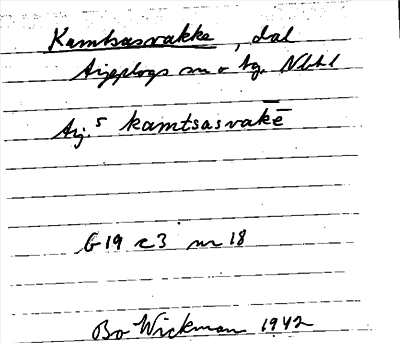 Kamtsasvakke, dal
Arjeplogs sn o tg. Nbtl
Arj. 5 kamtsasvak̄ē
G19 c3 nr 18
Bo Wickman 1942